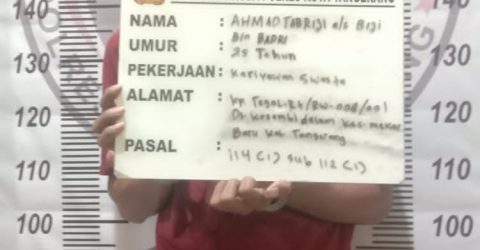 NAMA : AHMAD TABRIJI a/s Biji
Bin BADRI
UMUR : 25 Tahun
PEKERJAAN : Kariyawan Swasta
ALAMAT : kp Tegal Rt/RW-008/001
Ds kosambi dalam kec mekar
Baru kab Tangerang
PASAL : 114 (1) sub 112 (1)
140
130
120
110
100
140
130
120
110
100